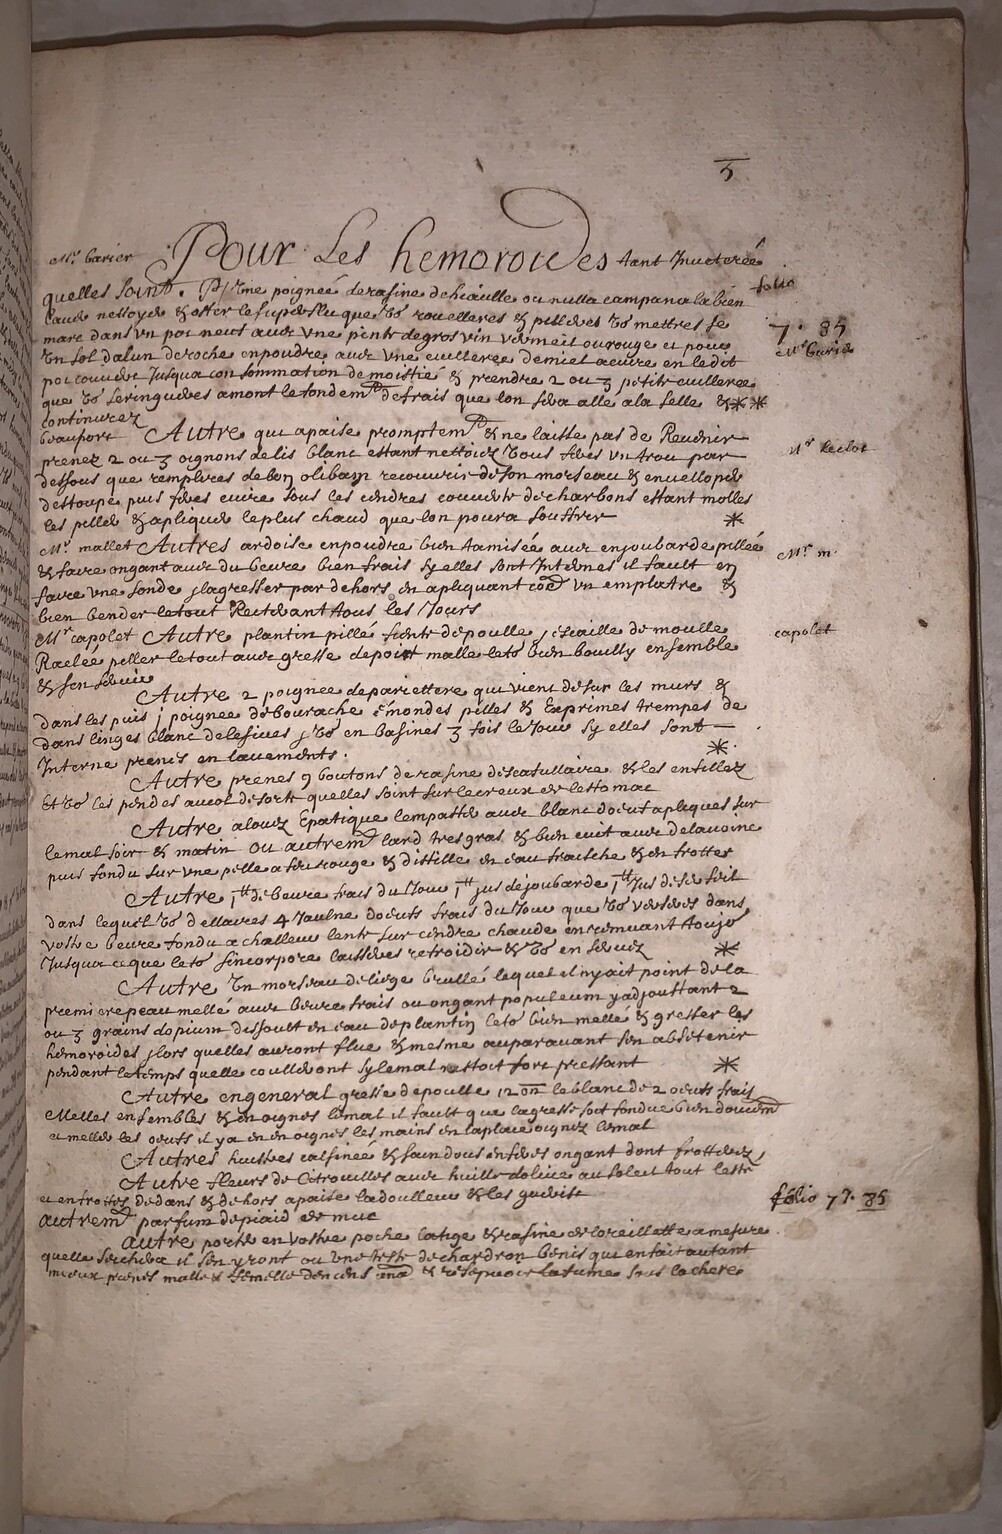 5
Mr. barier Pour Les hemoroides tant Inueterée
quelles soint. P/ Une poignée derasine dehiaulle ou nulla campana labien
folio
laués nettoyés & oster lesuperflu que Vo rouelleres & pilleres Vo mettres le
marc dans vn pot neuf auec vne pinte degros vin vermeil ourouge et pour
7. 85
Un sol dalun deroche enpoudre auec vne cuilleree demiel acuire en ledit
Mr barier
pot couuert Jusqua consommation demoistié & prendre 2 ou 3 petite cuilleree
que Vo seringueres amont lefondemt defrais que lon sera allé ala selle &
continurez
beaufort Autre qui apaise promptemt & ne laisse pas de Reuenir
prenez 2 ou 3 oignons delis blanc estant nettoiez Vous feres vn trou par
Mr
dessous que remplires debon oliban recouurir deson morseau & enuelopés
destoupe puis feres cuire sous les cendres couuerte decharbons estant molles
les pilles & apliques leplus chaud que lon poura souffrir
Mr. mallet Autres ardoise enpoudre bien tamisée auec enjoubarde pillée
Mr m.
& faire ongant auec du beure bien frais sy elles sont Internes il fault en
faire vne sonde j lagresser par dehors en apliquant vn emplatre &
bien bender letout Reiterant tous les Jours
Mr capolet Autre plantin pillé fiente depoulle, escaille de moulle
capolet
Raclée piller letout auec gresse depoix malle leto bien bouilly ensemble
& sen seruir
Autre 2 poignee depariettere qui vient desur les murs &
dans les puis j poignee debourache émondes pilles & Exprimes trempes de
dans linges blanc delesiues j Vo en basines 3 fois leJour sy elles sont
Interne prenés en lauements.
Autre prenes 9 boutons derasine descrofullaire & les enfillez
Et Vo les pendes aucol desorte quelles soint sur lecreux de lestomac
Autre alouez Epatique lempasté auec blanc doeuf apliques sur
lemal soir & matin ou autremt lard tresgras & bien cuit auec delauoine
puis fondu sur vne pelle afeu rouge & distille en eau fraische & en frotter
Autre j tt debeure frais du Jour j tt jus dejoubarde j tt Jus
dans lequel Vo dellaires 4 Jaulne doeufs frais du Jour que Vo verseres dans
vostre beure fondu a challeur lente sur cendre chaude enremuant toujo
Jusqua ceque leto sincorpore laisseres refroidir & Vo en seruez
Autre Un morseau deliege brullé lequel il nyait point de la
premiere peau mellé auec beure frais ou ongant populeum yadjouttant 2
ou 3 grains dopium dessoult en eau deplantin leto bien melle & gresser les
hemoroides jlors quelles auront flue & mesme auparauant sen abstenir
pendant letemps quelle coulleront sy lemal nestoit fort pressant
Autre engeneral gresse depoulle 12 on leblanc de 2 oeufs frais
Melles ensembles & en oignes lemal il fault que lagresse soit fondue bien doucemt
et meller les oeufs il ya en en oignes les mains en laplace oignez lemal
Autres huistres calsinée & fain doux enferes ongant dont frotterez,
Autre fleurs de Citrouilles auec huille doliue ausoleil tout leste
et enfrottes dedans & dehors apaise ladoulleur & les guerist
folio 77. 85
autremt parfum depiaid de muc
autre portes en vostre poche latige & rasine de loreillette amesure
quelle sechera il sen yront ou vne teste dechardron benis qui enfait autant
mieux prenes malle & femelle dencens & resepuoir lafumé sous lachere